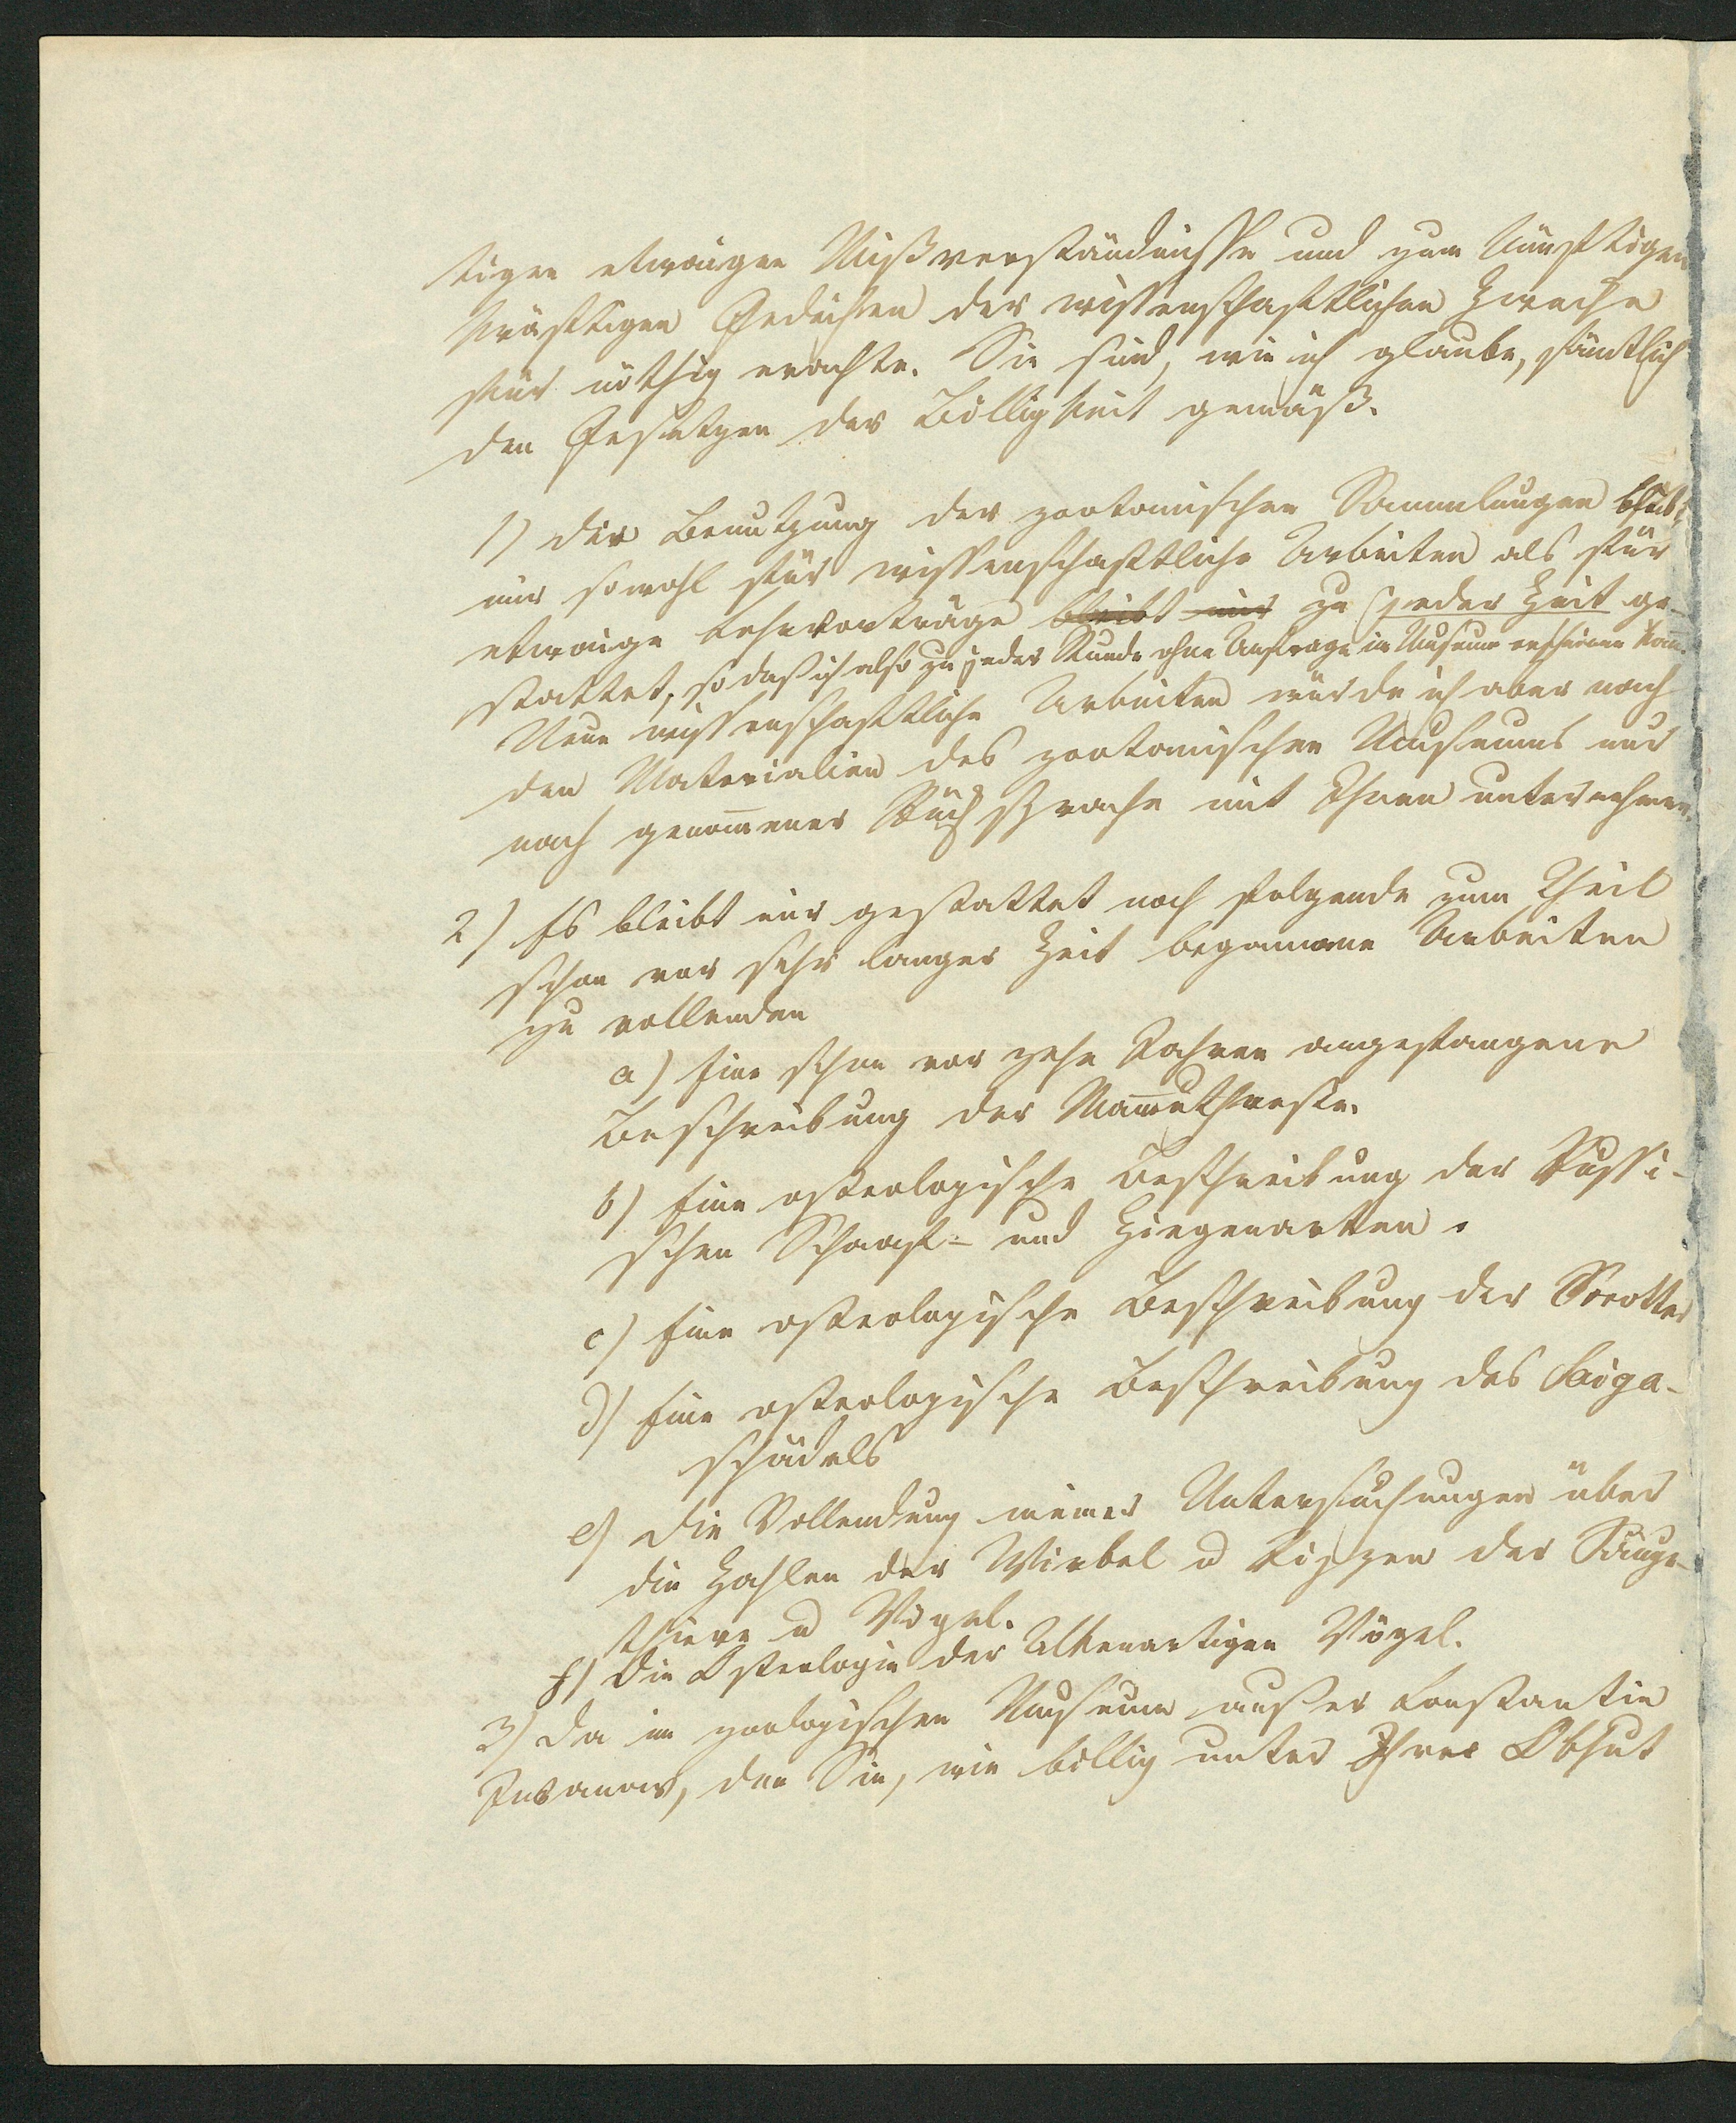 tigen etwaigen Mißverständnisse und zum künftigen
kräftigen Gedeihen der wissenschaftlichen Zwecke
für nöthig erachte. Sie sind, wie ich glaube, sämtlich
den Gesetzen der Billigkeit gemäß.
1) Die Benutzung der zootomischen Sammlungen bleibt
mir sowohl für wissenschaftliche Arbeiten als für
etwaige Lehrvorträge bleibt mir zu jeder Zeit ge-
stattet, so daß ich also zu jeder Stunde ohne Anfrage im Museum erscheinen kann.
Neue wissenschaftliche Arbeiten würde ich aber nach
den Materialien des zootomischen Museums nur
nach genom̅ener Rücksprache mit Ihnen unternehmen
2) Es bleibt mir gestattet noch folgende zum Theil
schon vor sehr langer Zeit begonnene Arbeiten
zu vollenden
a) Eine schon vor zehn Jahren angefangene
Beschreibung der Mam̅uthreste.
b) Eine osteologische Beschreibung der Russi-
schen Schaaf- und Ziegenarten.
c) Eine osteologische Beschreibung der
d) Eine osteologische Beschreibung des Saiga-
schädels
e) Die Vollendung meiner Untersuchungen über
die Zahlen der Wirbel u Rippen der Säuge-
thiere u Vögel.
f) Die Osteologie der Alkenartigen Vögel.
3) Da im zoologischen Museum außer Constantin
Iwanow, den Sie, wie billig unter Ihre Obhut